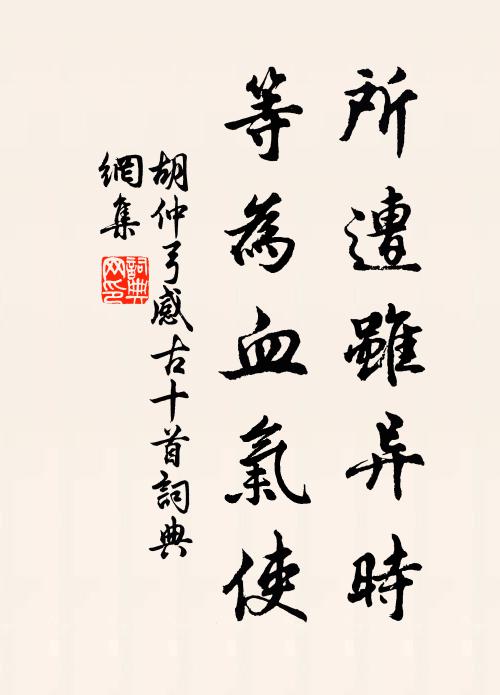 所遭雖异時
等為血氣使
胡仲弓感古十首詞典
網集
詞典
网印